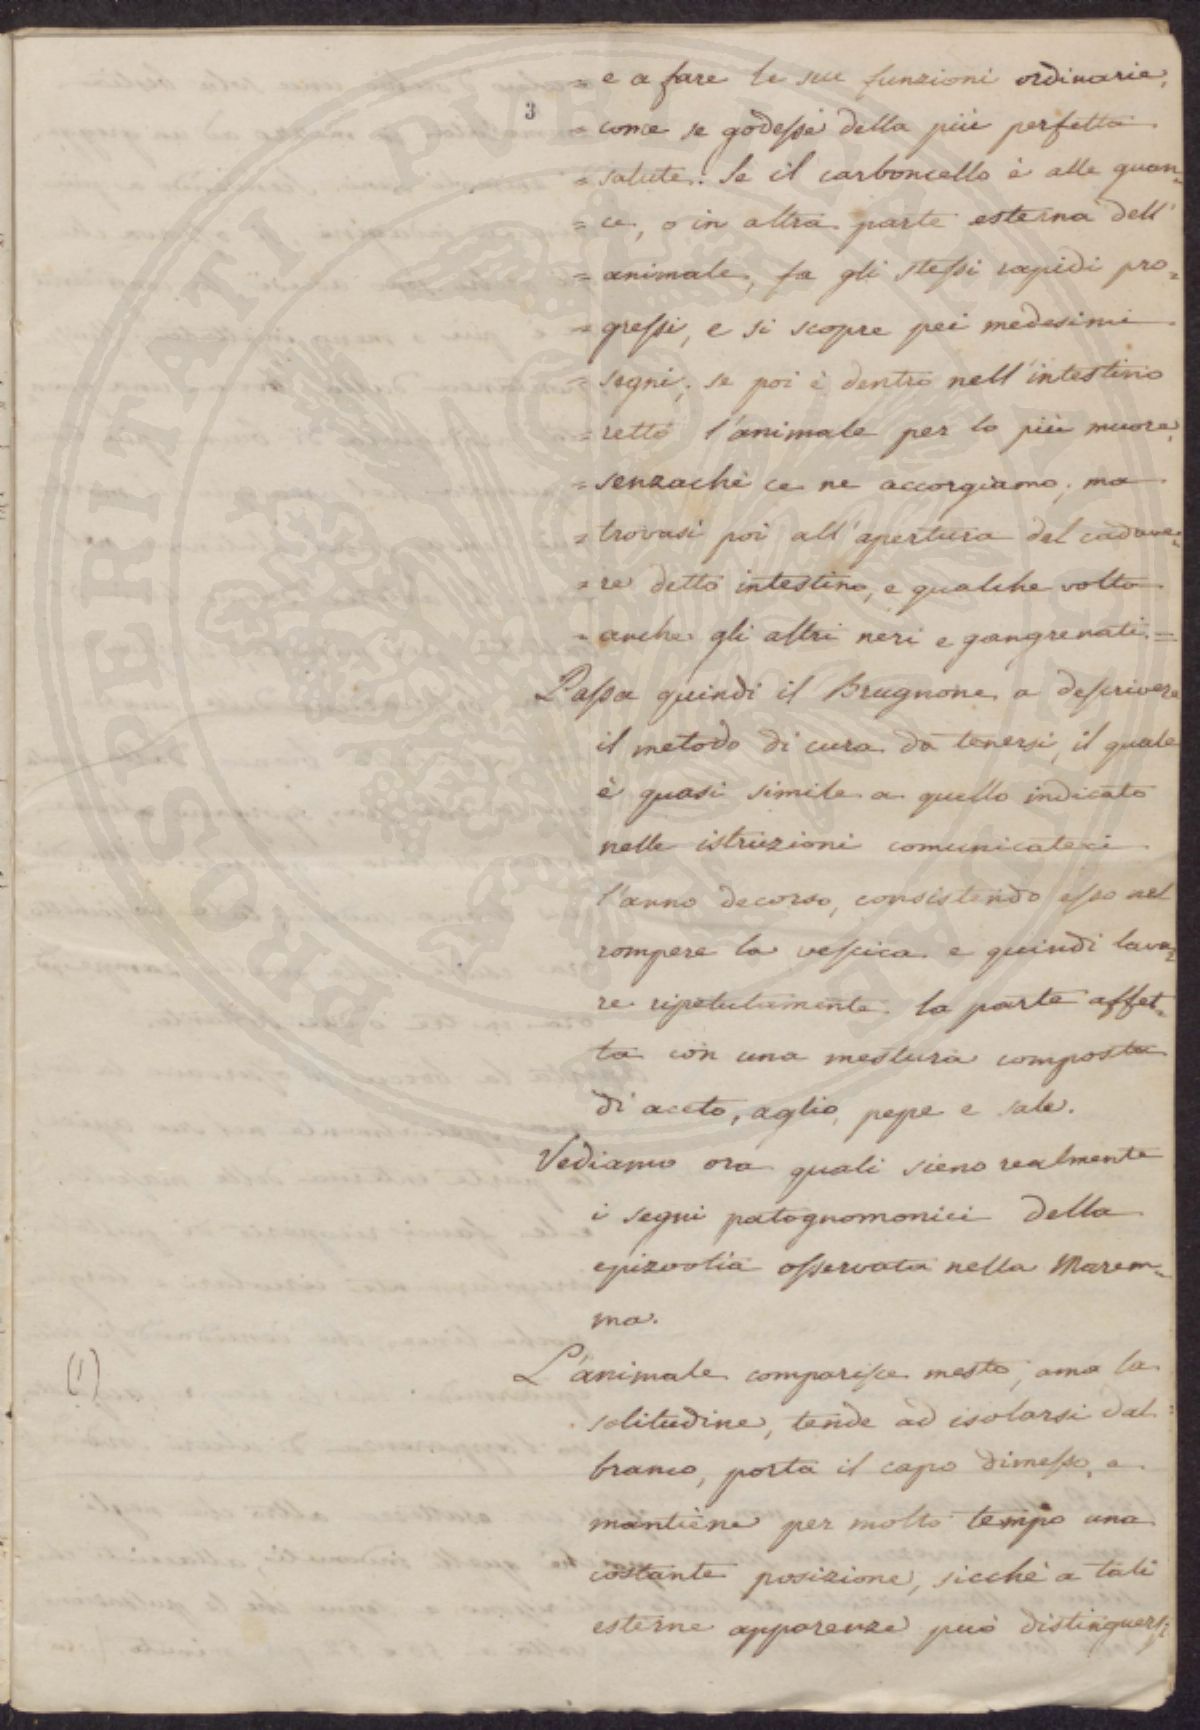 = e a fare le sue funzioni ordinarie,
3
= come se godesse della più perfetta
= salute. Se il carboncello è alle guan=
= ce, o in altra parte esterna dell'
= animale, fa gli stessi rapidi pro=
= gressi, e si scopre pei medesimi
= segni; se poi è dentro nell'intestino
= retto l'animale per lo più muore,
= senzachè ce ne accorgiamo; ma
= trovasi poi all'apertura del cadave=
= re detto intestino, e qualche volta
= anche gli altri neri e gangrenati. =
Passa quindi il Brugnone a descrivere
il metodo di cura da tenersi, il quale
è quasi simile a quello indicato
nelle istruzioni comunicateci
l'anno decorso, consistendo esso nel
rompere la vescica e quindi lava=
re ripetutamente la parte affet=
ta con una mestura composta
di aceto, aglio, pepe e sale.
Vediamo ora quali sieno realmente
i segni patognomonici della
epizootia osservata nella Marem=
ma.
(1)
L'animale comparisce mesto, ama la
solitudine, tende ad isolarsi dal
branco, porta il capo dimesso, e
mantiene per molto tempo una
costante posizione, sicchè a tali
esterne apparenze può distinguersi
PROSPERITATI PVBLICAE